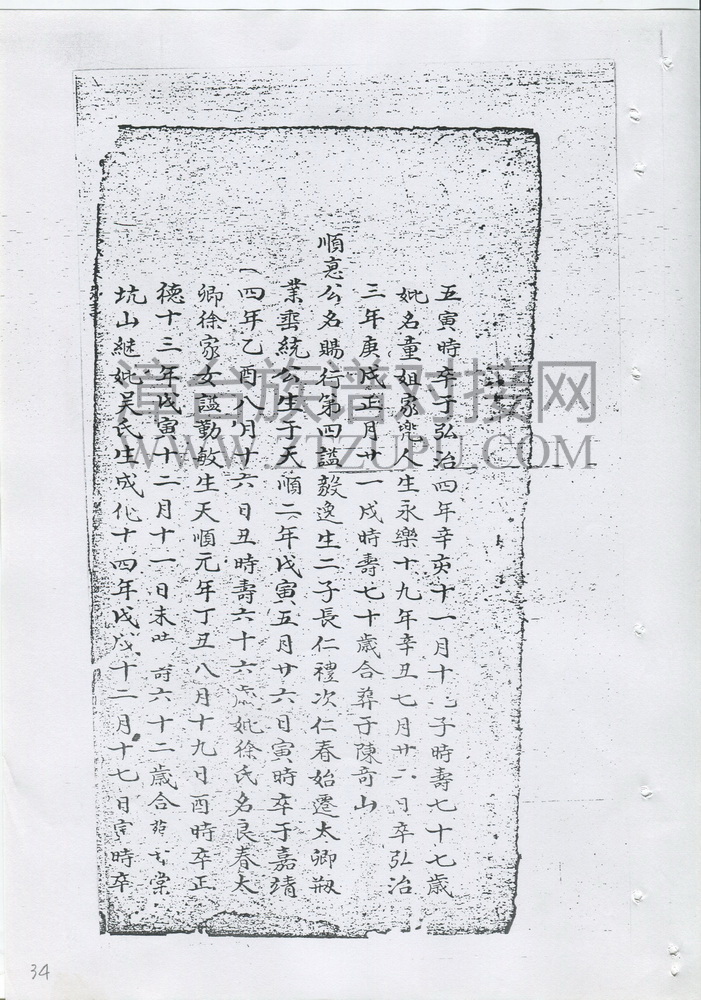 五寅時卒于弘治四年辛亥十一月十子時壽七十七歲
妣名童姐家兜人生永樂十九年辛丑七月廿二日卒弘治
三年庚戌正月廿一戌時壽七十歲合葬于陳奇山
順意公名賜行第四謚毅逸生二子長仁禮次仁春始遷太卿
業垂統公生于天順二年戊寅五月廿六日寅時卒于嘉靖
四年乙酉八月廿六日丑時壽六十六歲妣徐氏名良春太
卿徐家女謚勤敏生天順元年丁丑八月十九日酉時卒正
德十三年戊寅十二月十一日未時壽六十二歲合棠
坑山繼妣吳氏生成化十四年戊戌十二月十七日時卒
漳台族谱对接网
WWW.ZTZUPU.COM
34